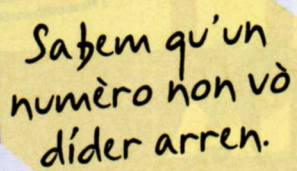 Sabem qu'un
numèro non vò
díder arren.